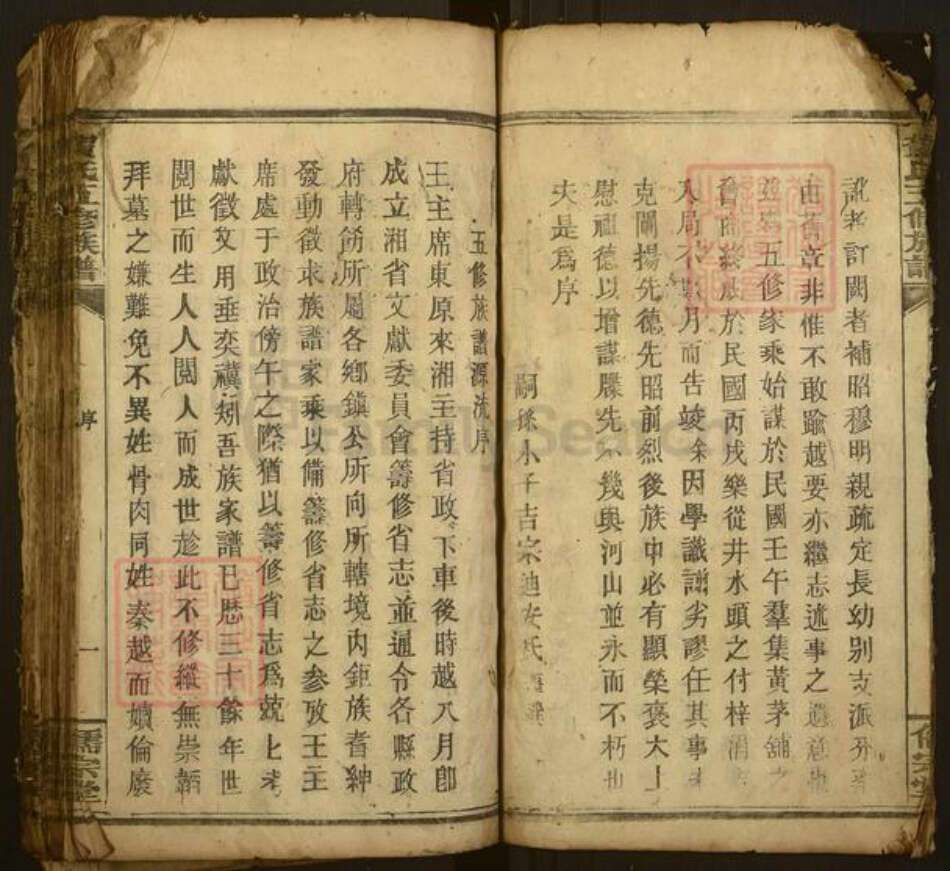 訛者訂闕者補昭穆明親疏定長幼別支派分
由舊章非惟不敢踰越要亦繼志述事之遺意也
五修家乘始謀於民國壬午羣集黃茅舖之
於民國丙戌樂從井水頭之付梓
入局不數月而告竣馀因學識譾劣謬任其事
克闡揚先德先昭前烈後族中必有顯榮褒大上
慰祖德以增謀牒先亦幾與河山並永而不朽也
夫是爲序
嗣孫小子吉宗迪安氏謹譔
五修族譜源流序
王主席東原來湘主持省政下車後時越八月卽
成立湘省文獻委員會籌修省志並通令各縣政
府轉飭所屬各鄉鎮公所向所轄境內鉅族耆紳
發動徵求族譜家乘以備籌修省志之參攷王主
席處于政治傍午之際猶以籌修省志爲兢兢考
獻徵文用垂奕禩矧吾族家譜已歷三十餘年世
閱世而生人人閱人而成世趁此不修繼無崇韜
拜墓之嫌難免不異姓骨肉同姓秦越而嬻倫廢
氏五修族譜
序
一
儒宗堂